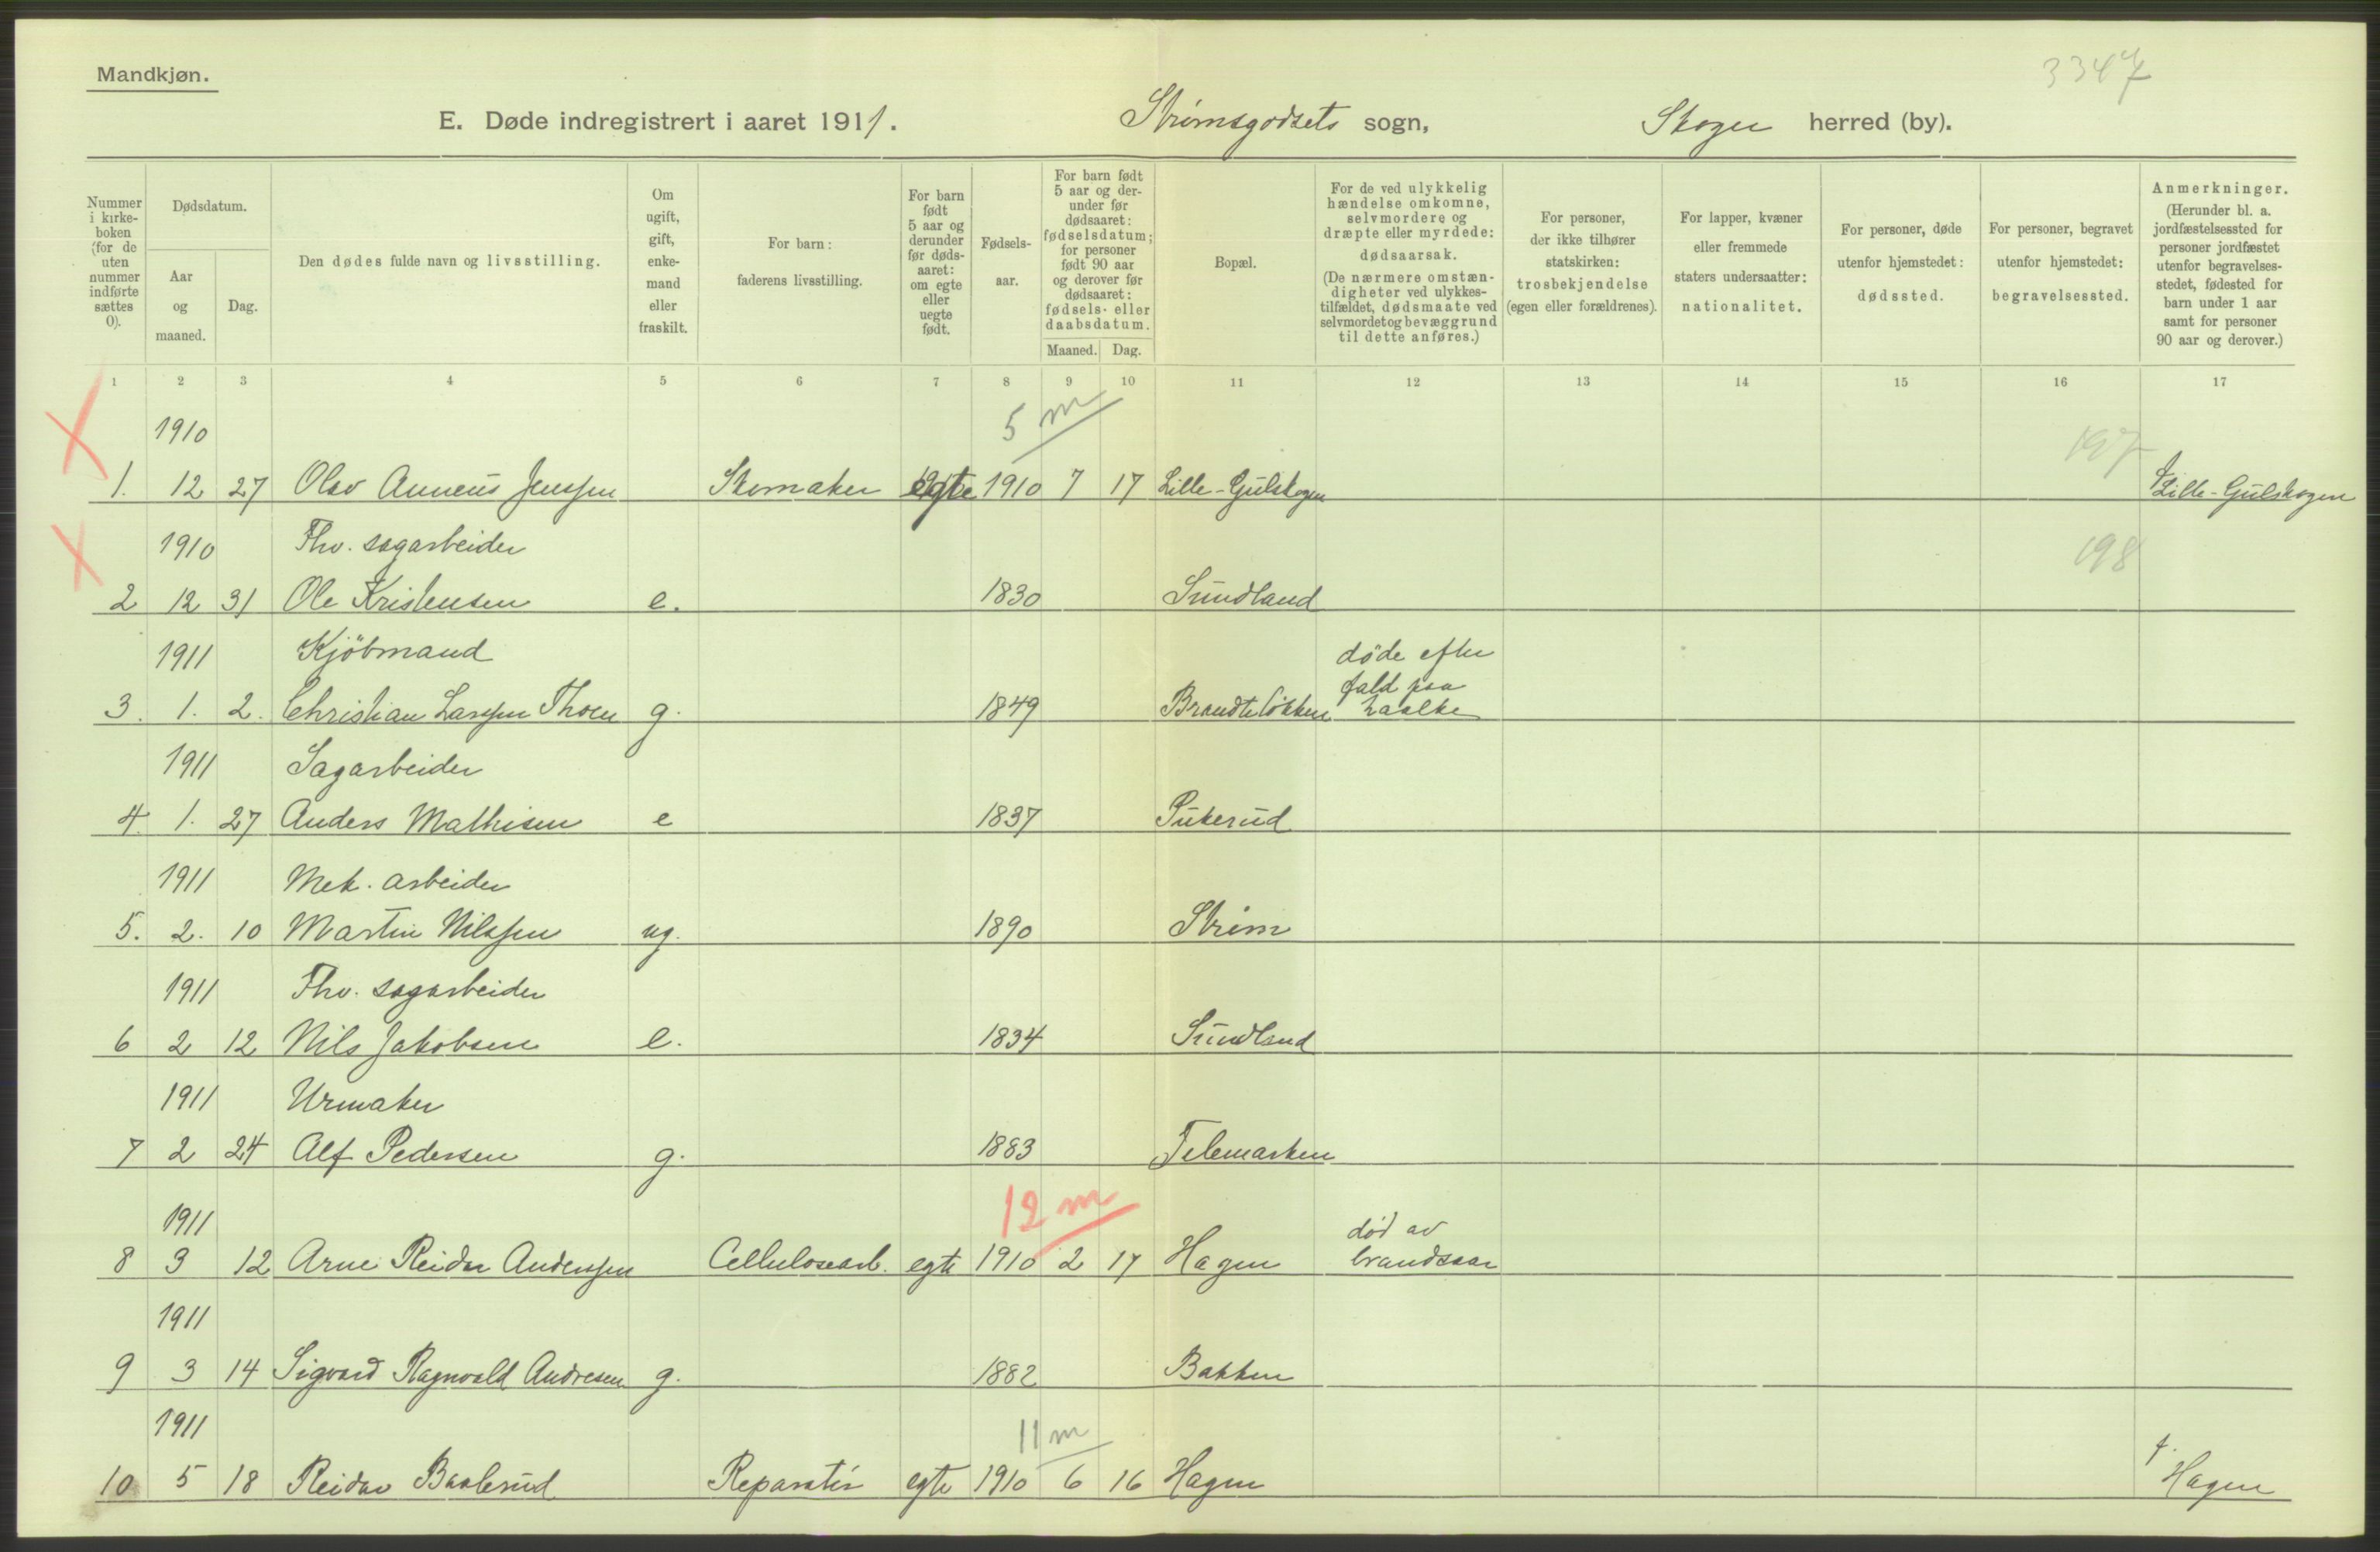 Mandkjøn.
3347
E. Døde indregistrert i aaret 1911. Strømsgodsets sogn, Skoger herred (by).
Nummer i kirke-boken (for de uten nummer indførte sættes 0).
Dødsdatum.
Aar og maaned.
Dag.
Den dødes fulde navn og livsstilling.
Om ugift, gift, enke-mand eller fraskilt.
For barn: faderens livsstilling.
For barn født 5 aar og derunder før døds-aaret: om egte eller uegte født.
Fødsels-aar.
For barn født 5 aar og der-under før dødsaaret: fødselsdatum; for personer født 90 aar og derover før dødsaaret: fødsels- eller daabsdatum.
Maaned. Dag.
Bopæl.
For de ved ulykkelig hændelse omkomne, selvmordere og dræpte eller myrdede: dødsaarsak. (De nærmere omstæn-digheter ved ulykkes-tilfældet, dødsmaate ved selvmordet og bevæggrund til dette anføres.)
For personer, der ikke tilhører statskirken: trosbekjendelse (egen eller forældrenes).
For lapper, kvæner eller fremmede staters undersaatter: nationalitet.
For personer, døde utenfor hjemstedet: dødssted.
For personer, begravet utenfor hjemstedet: begravelsessted.
Anmerkninger. (Herunder bl. a. jordfæstelsessted for personer jordfæstet utenfor begravelses-stedet, fødested for barn under 1 aar samt for personer 90 aar og derover.)
1 2 3 4 5 6 7 8 9 10 11 12 13 14 15 16 17
1910 5 m 197
1. 12 27 Olav Anneus Jenssen Skomaker egte 1910 7 17 Lille-Gulskogen Lille-Gulskogen
1910 Fhv. sagarbeider 198
2 12 31 Ole Kristensen e. 1830 Sundland
1911 Kjöbmand døde efter
fald paa
3. 1. 2. Christian Larssen Thoen g. 1849 Brandteløkken haalke
1911 Sagarbeider
4. 1. 27 Anders Mathisen e 1837 Pukerud
1911 Mek. arbeider
5. 2. 10 Martin Nilssen ug. 1890 Strøm
1911 Fhv. sagarbeider
6 2 12 Nils Jakobsen e. 1834 Sundland
1911 Urmaker
7 2 24 Alf Pedersen g. 1883 Telemarken
1911 12 m død av
8 3 12 Arne Reidar Anderssen Cellulosearb. egte 1910 2 17 Hagen brandsaar
1911
9 3 14 Sigvard Ragnvald Andresen g. 1882 Bakken
1911 11 m
10 5 18 Reidar Baalerud Reparatør egte 1910 6 16 Hagen f. Hagen